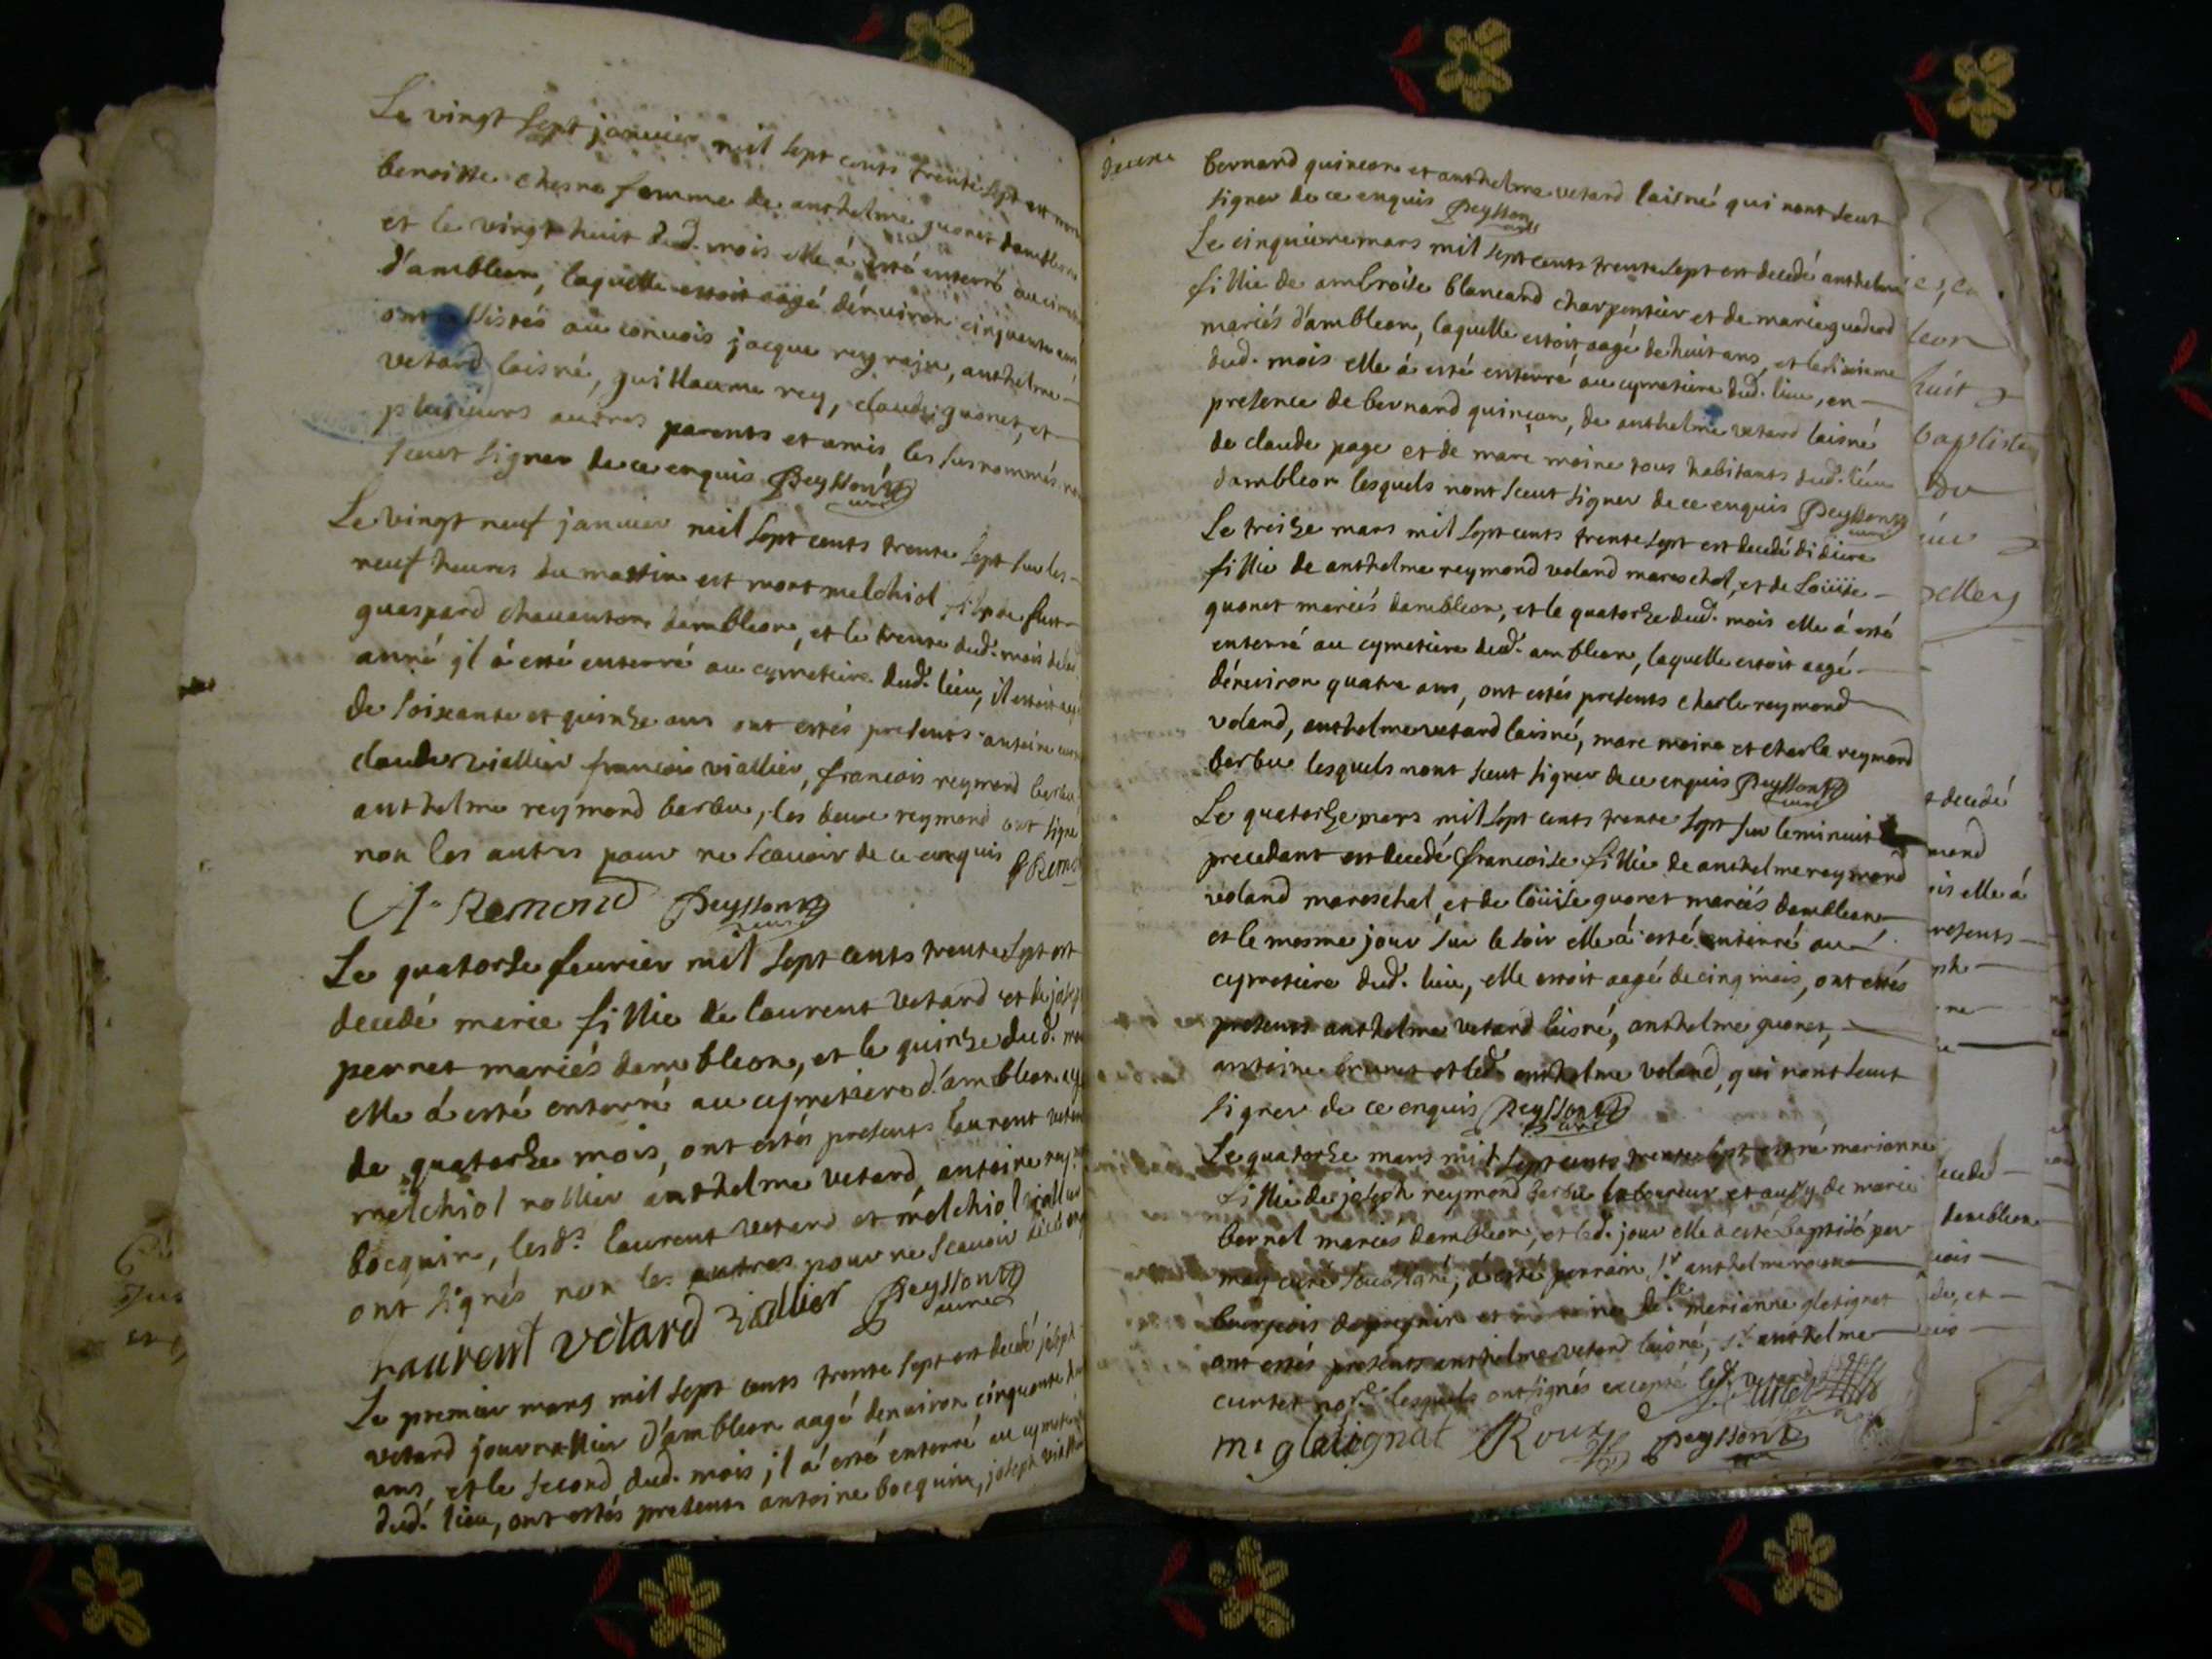 Le vingt sept januier mil sept cents trente sept est mort
benoitte chesne femme de anthelme guonet dambleon
et le vingt huit dud. mois elle á esté enterré au cimeti
d'ambleon, laquelle estoit aagé dénuiron cinquante ans
ont assistés au conuois jacque rey rajn, anthelme
vetard laisné, guillaume rey, claude guonet, et
plusieurs autres parents et amis, les susnommés n'on
sceut signer de ce enquis Peysson curé
Le vingt neuf januier mil sept cents trente sept sur les
neuf heures du mattin est mort melchiol fils de feu
guaspard chauenton dambleon, et le trente dud. mois
anné jl á esté enterré au cymetiere dud. lieu, il estoit aagé
de soixante et quinze ans ont estés presents antoine
claude viallier francois viallier, francois reymond barbu
anthelme reymond barbu, les deux reymond ont signé
non les autres pour ne scauoir de ce enquis
A. Remond Peysson curé
Le quatorze feurier mil sept cents trente sept est
decedé marie fillie de laurent vetard et de josep
pernet mariés dambleon, et le quinze dud. mois
elle á esté enterré au cymetiere d'ambleon
de quatorze mois, ont estés presents laurent vetard
melchiol vollier anthelme vetard, antoine rey
bocquin, lesds. laurent vetard et melchiol viallier
ont signés non les autres pour ne scauoir de ce enq
Laurent vetard viallier Peysson curé
Le premier mars mil sept cents trente sept est decedé joseph
vetard journallier d'ambleon aagé denuiron cinquante
ans, et le second dud. mois jl á esté enterré au cymetiere
dud. lieu, ont estés presents antoine bocquin, joseph viallier
bernard quincon et anthelme vetard laisné qui nont sceut
signer de ce enquis Peysson curé
Le cinquieme mars mil sept cents trente sept est decedé anthelme
fillie de ambroise blancard charpentier et de marie guaderd
mariés d'ambleon, laquelle estoit aagé de huit ans, et le sixieme
dud. mois elle á esté enterré au cymetiere dud. lieu, en
presence de bernard quincon, de anthelme vetard laisné
de claude page et de marc moine tous habitants dud. lieu
dambleon lesquels nont sceut signer de ce enquis Peysson curé
Le treize mars mil sept cents trente sept est decedé didiere
fillie de anthelme reymond voland mareschal, et de Loüise
guonet mariés dambleon, et le quatorze dud. mois elle á esté
enterré au cymetiere dud. ambleon, laquelle estoit aagé
dénuiron quatre ans, ont estés presents charle reymond
voland, anthelme vetard laisné, marc moine et charle reymond
barbu lesquels nont sceut signer de ce enquis Peysson curé
Le quatorze mars mil sept cents trente sept sur le minuit
precedant est decedé francoise fillie de anthelme reymond
voland mareschal, et de loüise guonet mariés dambleon,
et le mesme jour sur le soir elle á esté enterré au
cymetiere dud. lieu, elle estoit aagé de cinq mois, ont estés
presents anthelme vetard laisné, anthelme guonet,
antoine brunet et led. anthelme voland, qui nont sceut
signer de ce enquis Peysson curé
Le quatorze mars mil sept cents trente sept est né marianne
fillie de joseph reymond barbu laboureur et aussy de marie
bernel mariés dambleon, et led. jour elle á esté baptisé par
moy curé soussigné, á esté parrain sr. anthelme roux
bourgeois et marraine dlle. marianne glatignat
ont estés presents anthelme vetard laisné, sr. anthelme
curtet nore. lesquels ont signés excepté led. vetard Curtet
m: glatignat Roux Peysson curé
leon
huit
baptiste
decedé
mond
is elle á
resents
decedé
dambleon